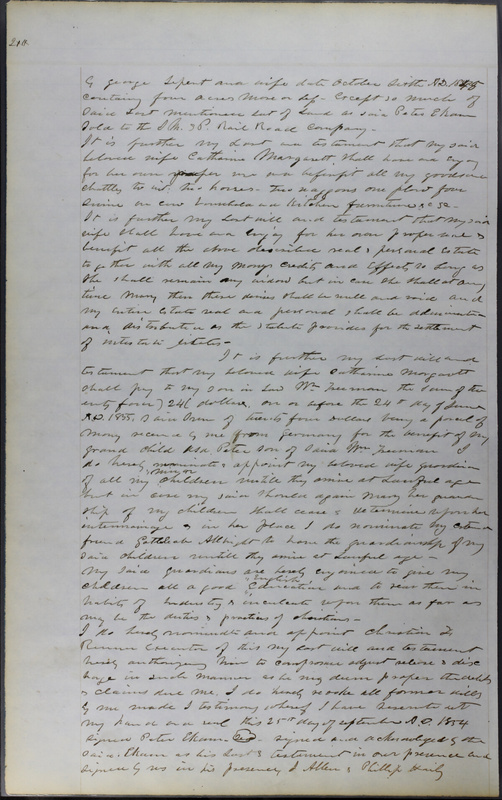 211.
by george Sipert and wife date October sixth A.D. 1845
containg four acres more or less - Except so much of
Said Last mentioned Lot of Land as said Peter Eham
Sold to the I. & P. Rail Road Company -
It is further my Last and testament that my said
beloved wife Catharine Margarett Shall have and enjoy
for her own proper use and benefit all my goods and
chattles to wit two horses - two waggons one plow four
Swine on cow household and Kitchen furniture &c &c -
It is further my Last will and testament that my said
wife shall have and enjoy for her own proper use &
benefit all the above described real & personal Estate
to gether with all my mony Credits and Effects so long as
she shall remain my widow but in case she shall at any
time marry then these devises shall be null and void and
my entire Estate real and personal shall be administered
and distributed as the Statute provides for the settlement
of intestate Estates -
It is further my Last will and
testament that my beloved wife Catharine Margarett
shall pay to my son in Law Wm Freeman the sum of (tw
enty four) 24( dollars, on or before the 24th day of June
A.D. 1855, Said Sum of twenty four dollars being a parcel of
mony received by me from Germany for the benefit of my
grand child Peter son of Said Wm Freeman I
do hereby nominate & appoint my beloved wife guardian
of all my minor children untill they arrive at Lawful age
but in case my said should again marry her guardian
ship of my children Shall cease & determine upon her
intermarriage & in her place I do nominate my
friend Gottleib Allbright to have the guardianship of my
said children untill they arrive at Lawful age
my said guardians are hereby enjoined to give my
children all a good English Education and to rear them in
habits of industry & inculcate upon them as far as
may be the duties & practice of christians -
I do hereby nominate and appoint Christian F.
Executor of this my Last will and testament
hereby authorizing him to compromise adjust release & disc
harge in such manner as he may deem proper the debts
& claims due me. I do hereby revoke all former wills
by me made In testimony whereof I have hereunto set
my hand and seal this 25th day of September A.D. 1854
signed Peter Eham Seal signed and acknowledged by the
said Eham as his Last & testament in our presence and
signed by us in his presence, J Allen & Phillip Haily